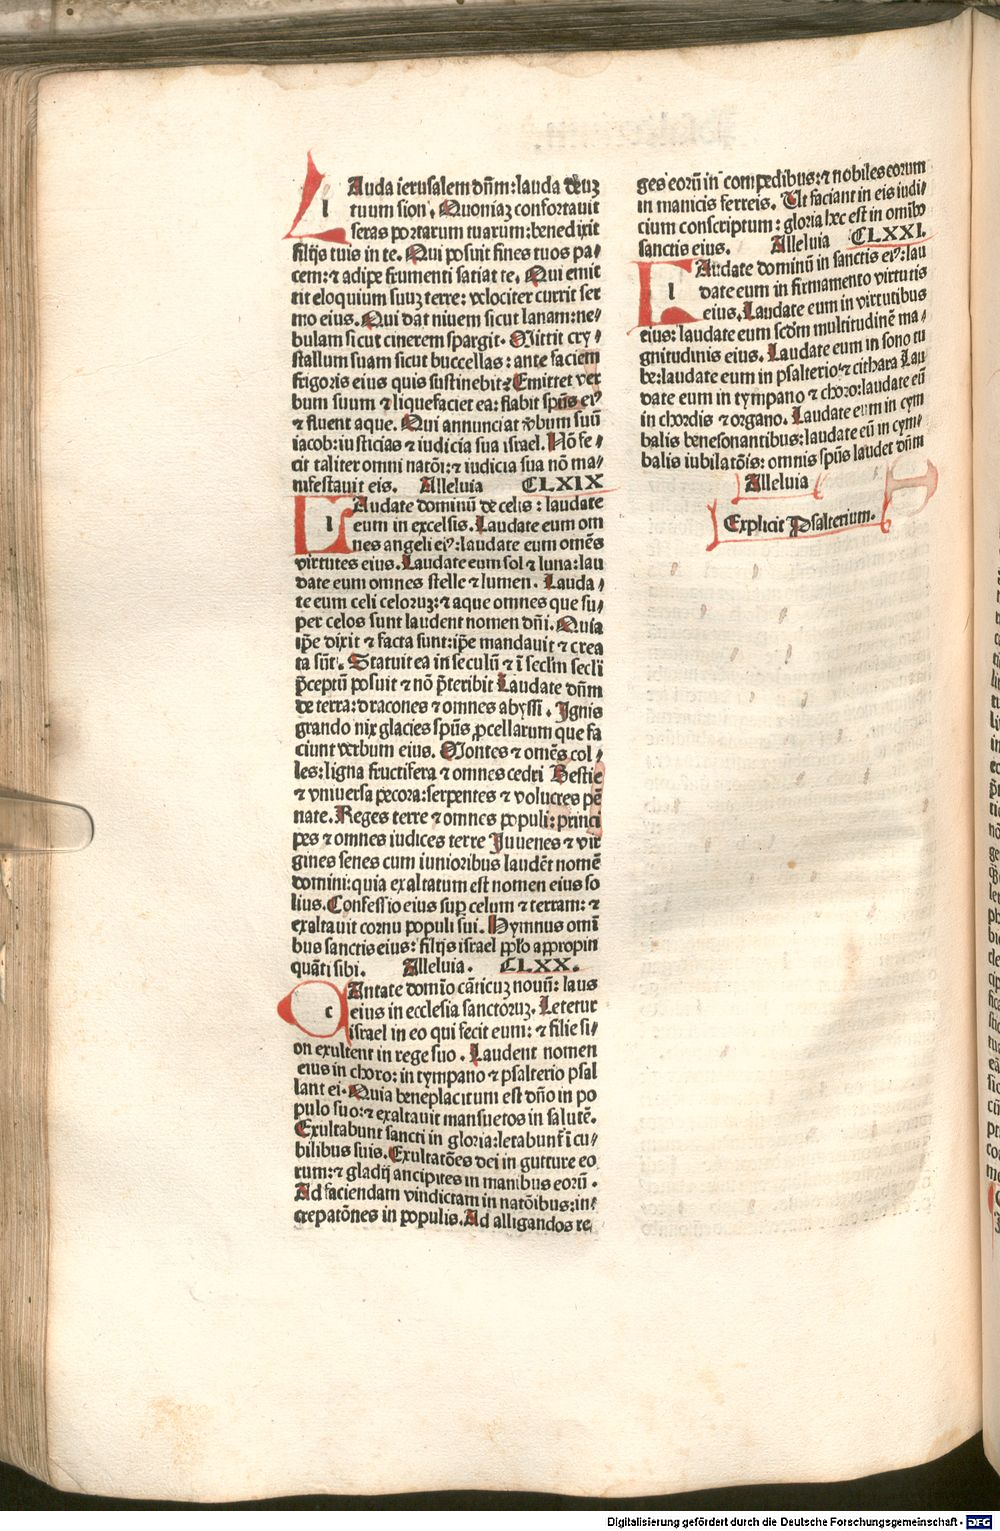 LAuda ierusalem dñm: lauda deuʒ
tuum sion. Quoniaʒ confortauit
seras portarum tuarum: benedixit
filijs tuis in te. Qui posuit fines tuos pa-
cem: ⁊ adipe frumenti satiat te. Qui emit
tit eloquium suuʒ terre: velociter currit ser
mo eius. Qui dat niuem sicut lanam: ne/
bulam sicut cinerem spargit. Mittit cry/
stallum suam sicut buccellas: ante faciem
frigoris eius quis sustinebit: Emittet ver
bum suum ⁊ liquefaciet ea: flabit spūs eiꝰ
⁊ fluent aque. Qui annunciat vbum suū
iacob: iusticias ⁊ iudicia sua israel. Nō fe/
cit taliter omni natōi: ⁊ iudicia sua nō ma/
nifestauit eis. Alleluia CLXIX
LAudate dominū de celis: laudate
eum in excelsis. Laudate eum om
nes angeli eiꝰ: laudate eum omēs
virtutes eius. Laudate eum sol ⁊ luna: lau
date eum omnes stelle ⁊ lumen. Lauda/
te eum celi celoruʒ: ⁊ aque omnes que su/
per celos sunt laudent nomen dñi. Quia
ip̄e dixit ⁊ facta sunt: ip̄e mandauit ⁊ crea
ta sūt. Statuit ea in seculū ⁊ ī seclm̄ secli
p̄ceptū posuit ⁊ nō p̄teribit Laudate dñm
de terra: dracones ⁊ omnes abyssi. Ignis
grando nix glacies spūs ꝓcellarum que fa
ciunt verbum eius. Montes ⁊ omēs col/
les: ligna fructifera ⁊ omnes cedri Bestie
⁊ vniuersa pecora: serpentes ⁊ volucres pē
nate. Reges terre ⁊ omnes populi: princi
pes ⁊ omnes iudices terre Juuenes ⁊ vir
gines senes cum iunioribus laudēt nomē
domini: quia exaltatum est nomen eius so
lius. Confessio eius suꝑ celum ⁊ terram: ⁊
exaltauit cornu populi sui. Hymnus omī
bus sanctis eius: filijs israel ꝓplo appropin
quāti sibi. Alleluia. CLXX.
CAntate domīo cāticuʒ nouū: laus
eius in ecclesia sanctoruʒ. Letetur
israel in eo qui fecit eum: ⁊ filie si/
on exultent in rege suo. Laudent nomen
eius in choro: in tympano ⁊ psalterio psal
lant ei. Quia beneplacitum est dño in po
pulo suo: ⁊ exaltauit mansuetos in salutē.
Exultabunt sancti in gloria: letabunt̄ ī cu/
bilibus suis. Exultatōes dei in gutture eo
rum: ⁊ gladij ancipites in manibus eorū.
Ad faciendam vindictam in natōibus: in/
crepatōnes in populis. Ad alligandos re
ges eorū in compedibus: ⁊ nobiles eorum
in manicis ferreis. Ut faciant in eis iudi/
cium conscriptum: gloria hec est in omībꝰ
sanctis eius. Alleluia CLXXI.
LAudate dominū in sanctis eiꝰ: lau
date eum in firmamento virtutis
eius. Laudate eum in virtutibus
eius: laudate eum scdm̄ multitudinē ma/
gnitudinis eius. Laudate eum in sono tu
be: laudate eum in psalterio ⁊ cithara Lau
date eum in tympano ⁊ choro: laudate eū
in chordis ⁊ organo. Laudate eum in cym
balis benesonantibus: laudate eū in cym/
balis iubilatōis: omnis spūs laudet dñm
Alleluia
Explicit Psalterium.
Digitalisierung gefördert durch die Deutsche Forschungsgemeinschaft - DFG